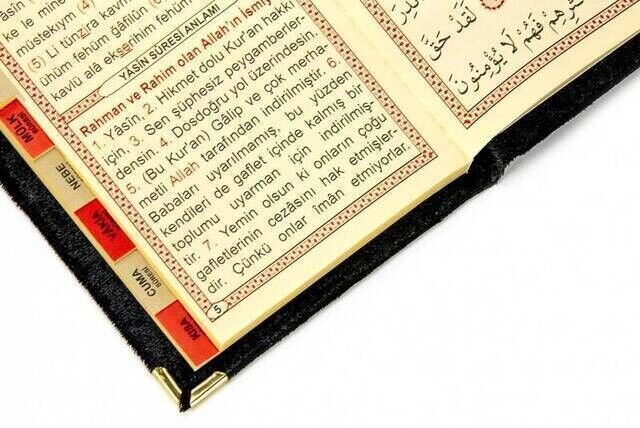 müstekıym (4)
(5) Li tünzira kavmen
ühüm fehüm ğâfilûn
kavlü alâ ekserihim fehüm
YÂSÎN SÛRESİ ANLAMI
Rahman ve Rahim olan Allah'ın İsmiy
1. Yâsîn. 2. Hikmet dolu Kur'an hakkı
için, 3. Sen şüphesiz peygamberler-
densin. 4. Dosdoğru yol üzerindesin.
5. (Bu Kur'an) Gâlip ve çok merha-
metli Allah tarafından indirilmiştir. 6.
Babaları uyarılmamış, bu yüzden
kendileri de gaflet içinde kalmış bir
toplumu uyarman için indirilmiş-
tir. 7. Yemin olsun ki onların çoğu
gafletlerinin cezâsını hak etmişler-
dir. Çünkü onlar îmân etmiyorlar.
5
لَقَدْ حَقَّ
فَهُمْ لَا يُؤْمِنُونَ
MÜLK
SÛRESİ
NEBE
VÂKIA
SÛRESİ
CUMA
SÛRESİ
KISA